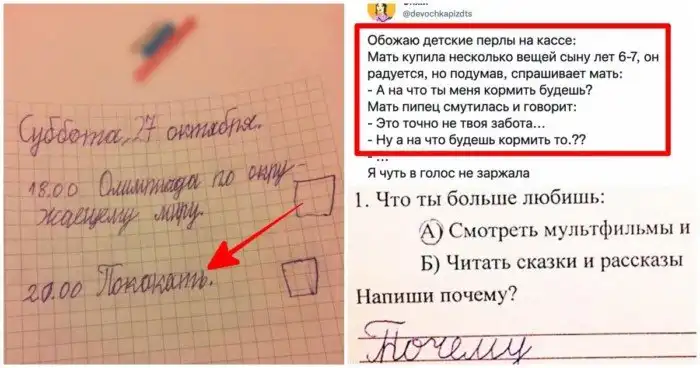 Суббота, 27 октября.
18.00 Олимпиада по окру-
жаещему миру.
20.00 Покакать.
@devochkapizdts
Обожаю детские перлы на кассе:
Мать купила несколько вещей сыну лет 6-7, он
радуется, но подумав, спрашивает мать:
- А на что ты меня кормить будешь?
Мать пипец смутилась и говорит:
- Это точно не твоя забота...
- Ну а на что будешь кормить то.??
- ...
Я чуть в голос не заржала
1. Что ты больше любишь:
А) Смотреть мультфильмы и
Б) Читать сказки и рассказы
Напиши почему?
Почему